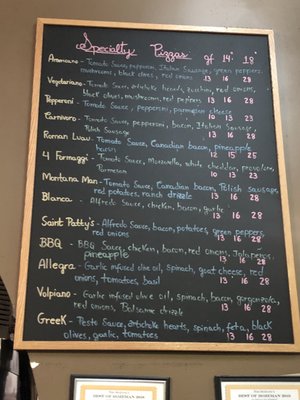 Specialty Pizzas gf 14" 18"
Aromano - Tomato Sauce, pepperoni, Italian Sausage, green peppers,
mushrooms, black olives, red onions 13 16 28
Vegetariano - Tomato Sauce, artichoke hearts, zucchini, red onions,
black olives, mushrooms, red peppers 13 16 28
Pepperoni - Tomato Sauce, pepperoni, parmesan cheese
10 13 23
Carnivoro - Tomato Sauce, pepperoni, bacon, Italian Sausage,
Polish Sausage 13 16 28
Roman Luau - Tomato Sauce, Canadian bacon, pineapple
bacon 12 15 25
4 Formaggi - Tomato Sauce, Mozzarella, white cheddar, provolone,
Parmesan 10 13 23
Montana Man - Tomato Sauce, Canadian bacon, Polish Sausage
red potatoes, ranch drizzle 13 16 28
Blanca - Alfredo Sauce, chicken, bacon, garlic
13 16 28
Saint Patty's - Alfredo Sauce, bacon, potatoes, green peppers,
red onions 13 16 28
BBQ - BBQ Sauce, chicken, bacon, red onions, Jalapenos,
pineapple 13 16 28
Allegra - Garlic infused olive oil, spinach, goat cheese, red
onions, tomatoes, basil 13 16 28
Volpiano - Garlic infused olive oil, spinach, bacon, gorgonzola,
red onions, Balsamic drizzle 13 16 28
Greek - Pesto Sauce, artichoke hearts, spinach, feta, black
olives, garlic, tomatoes 13 16 28
BEST OF BOZEMAN 2018
BEST OF BOZEMAN 2018